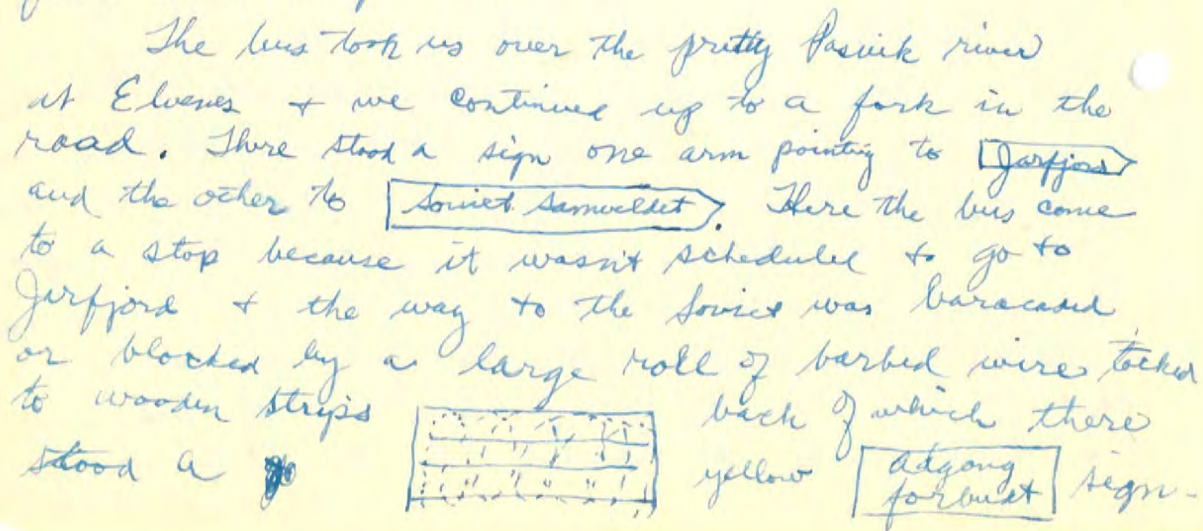 The bus took us over the pretty Pasvik river
at Elvenes + we continued up to a fork in the
road. There stood a sign one arm pointing to Jarfjord
and the other to Soviet Samveldet. Here the bus come
to a stop because it wasn't scheduled to go to
Jarfjord + the way to the Soviet was baracaded
or blocked by a large roll of barbed wire tacked
to wooden strips back of which there
stood a yellow adgang forbudt sign-